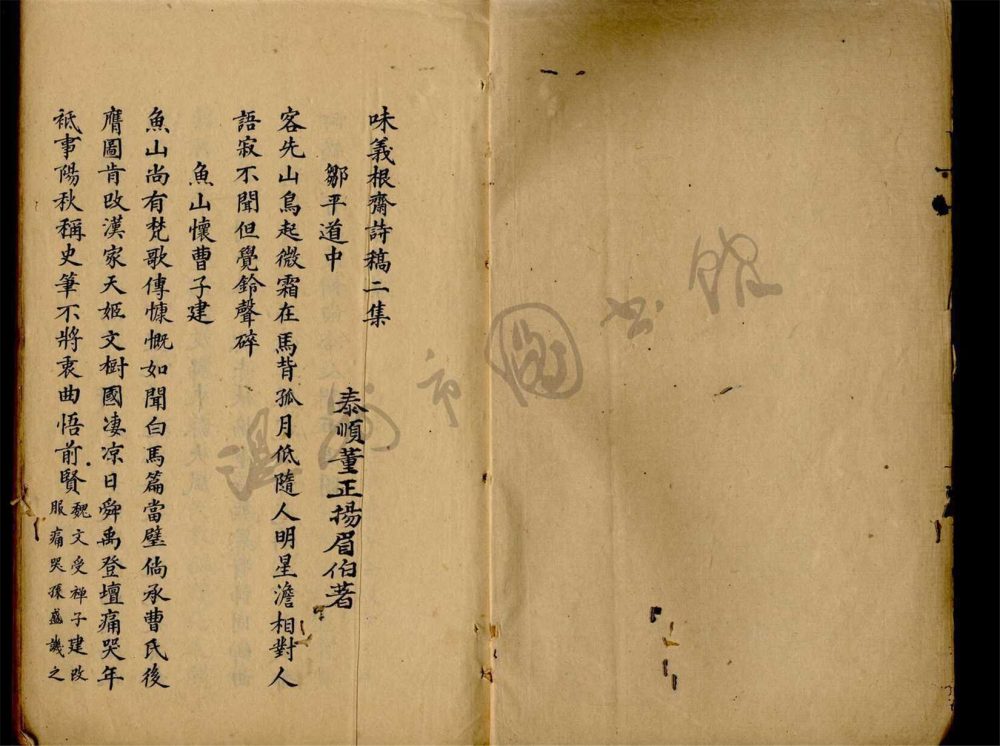 味義根齋詩稿二集
泰順董正揚眉伯著
鄒平道中
客先山鳥起微霜在馬背孤月低隨人明星澹相對人
語寂不聞但覺鈴聲碎
魚山懷曹子建
魚山尚有梵歌傳慷慨如聞白馬篇當璧倘承曹氏後
膺圖肯改漢家天姬文樹國凄凉日舜禹登壇痛哭年
袛事陽秋稱史筆不將衷曲悟前賢
魏文受禅子建改
服痛哭孫盛譏之
温州市圖书館